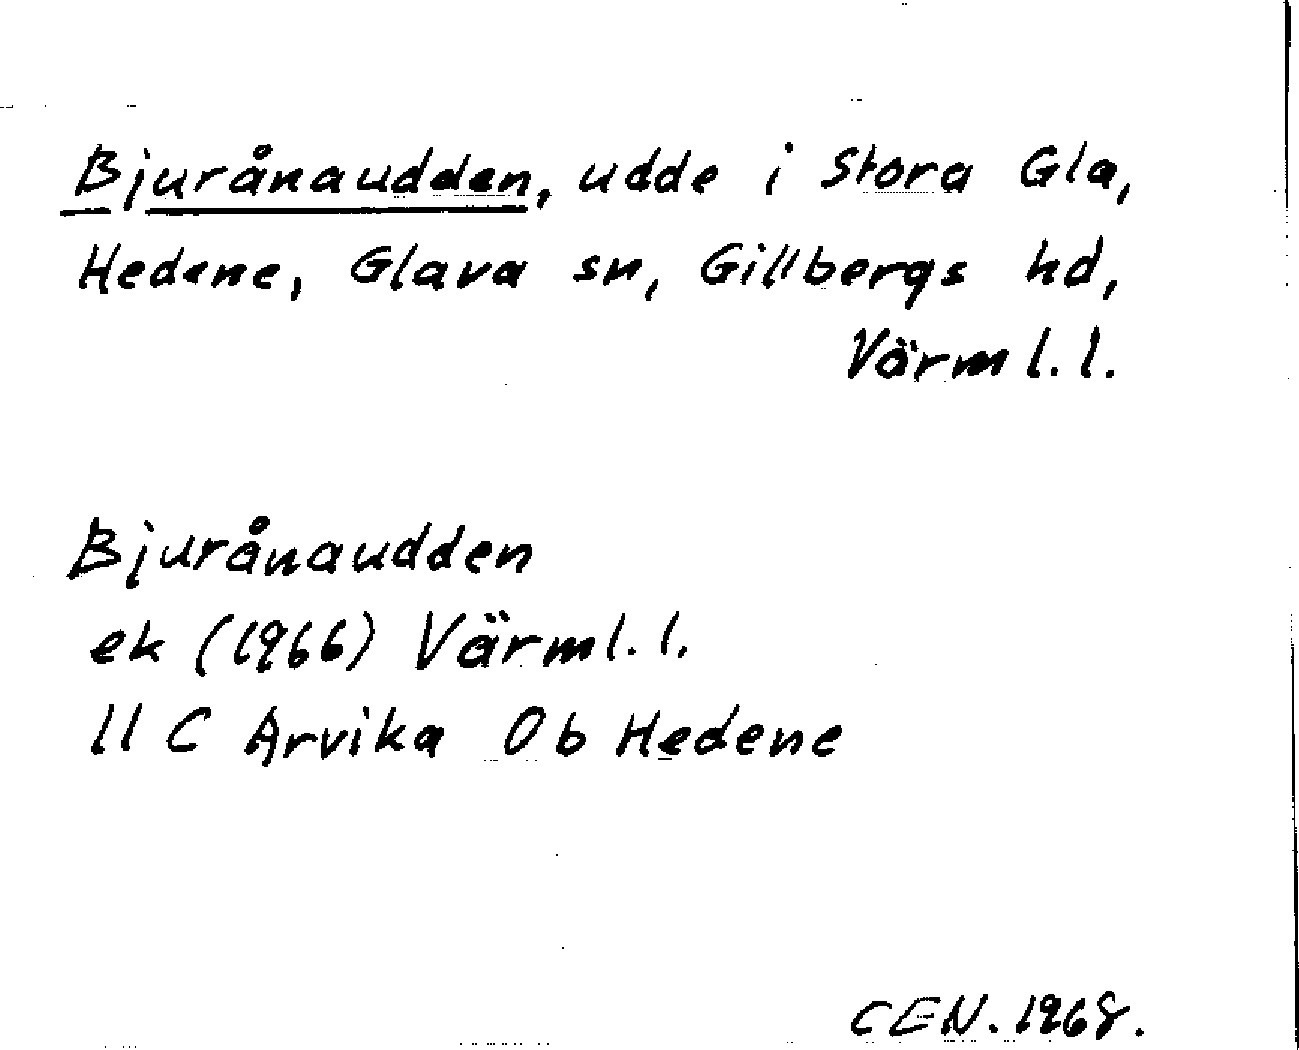 Bjurånaudden, udde i Stora Gla,
Hedene, Glava sn, Gillbergs hd,
Värml. l.
Bjurånaudden
ek (1966) Värml. l.
11 C Arvika 0b Hedene
CEN. 1968.